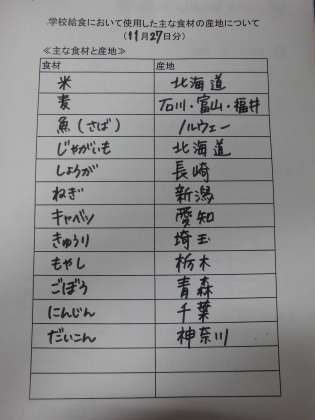 学校給食において使用した主な食材の産地について
(11月27日分)
≪主な食材と産地≫
食材 産地
米 北海道
麦 石川・富山・福井
魚(さば) ノルウェー
じゃがいも 北海道
しょうが 長崎
ねぎ 新潟
キャベツ 愛知
きゅうり 埼玉
もやし 栃木
ごぼう 青森
にんじん 千葉
だいこん 神奈川